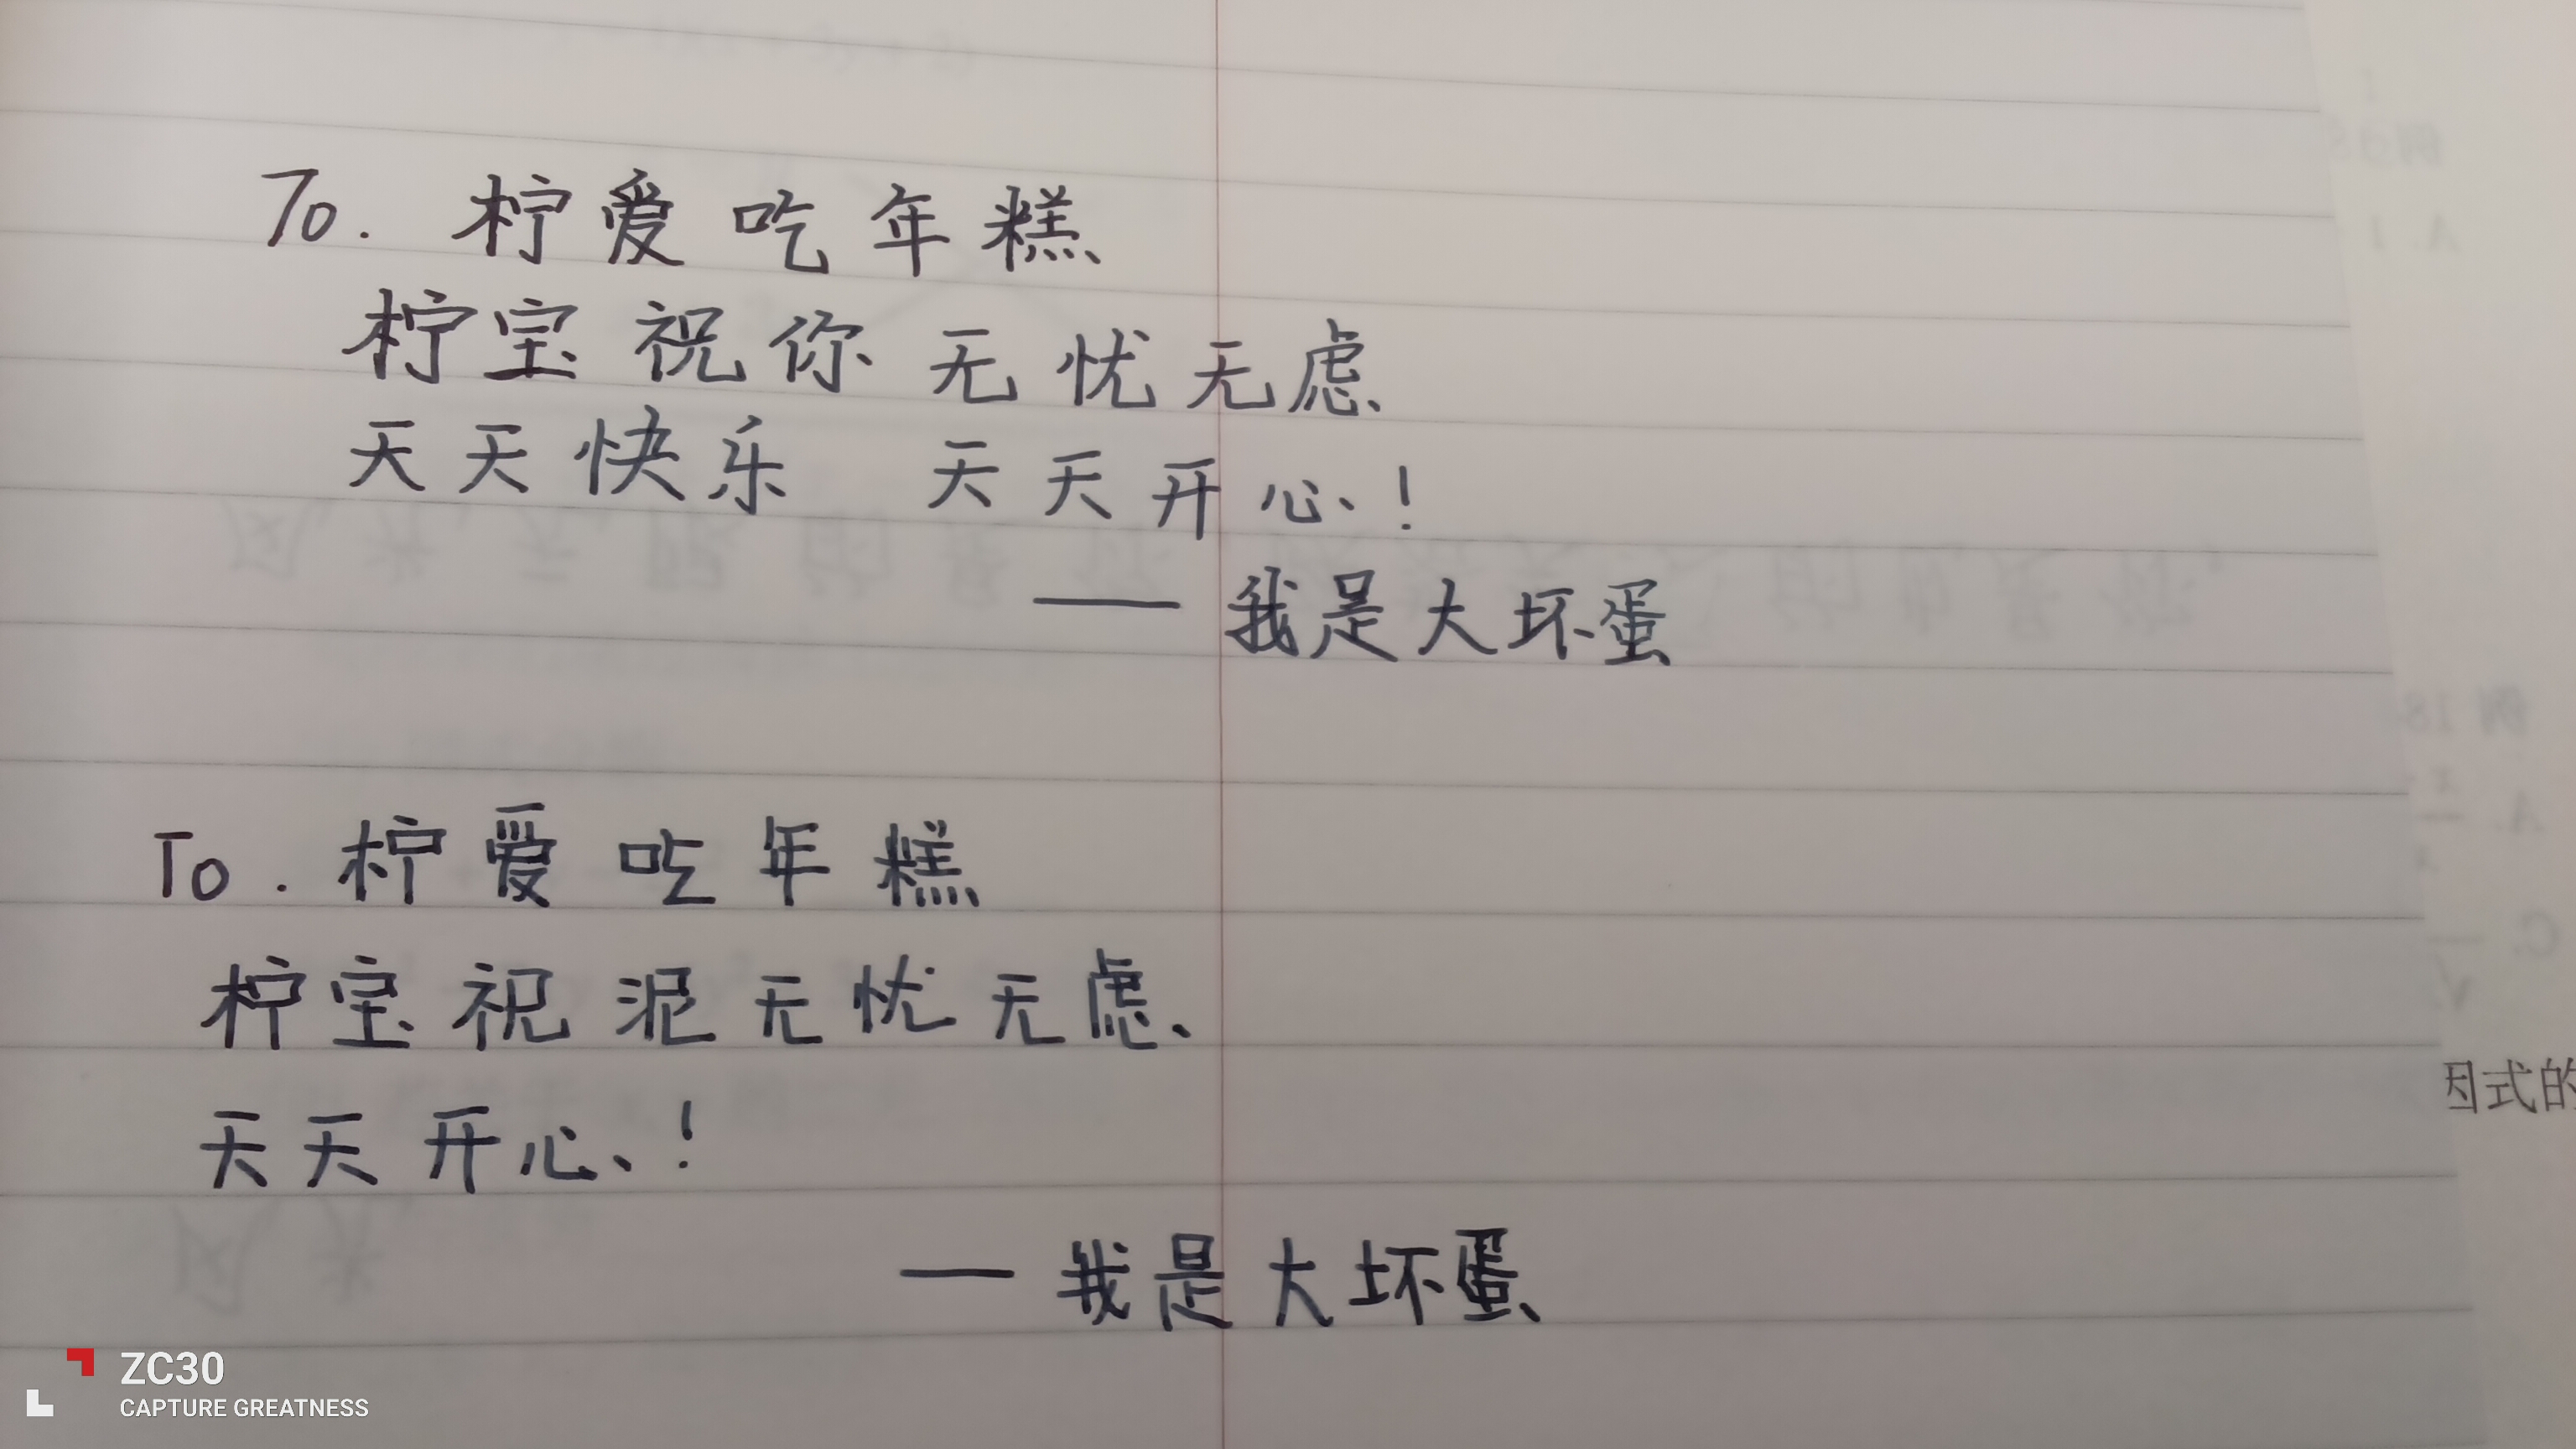 To. 柠爱吃年糕
柠宝祝你 无忧无虑
天天快乐 天天开心!
—— 我是大坏蛋
To. 柠爱吃年糕
柠宝祝泥无忧无虑
天天开心!
— 我是大坏蛋
因式的
ZC30
CAPTURE GREATNESS